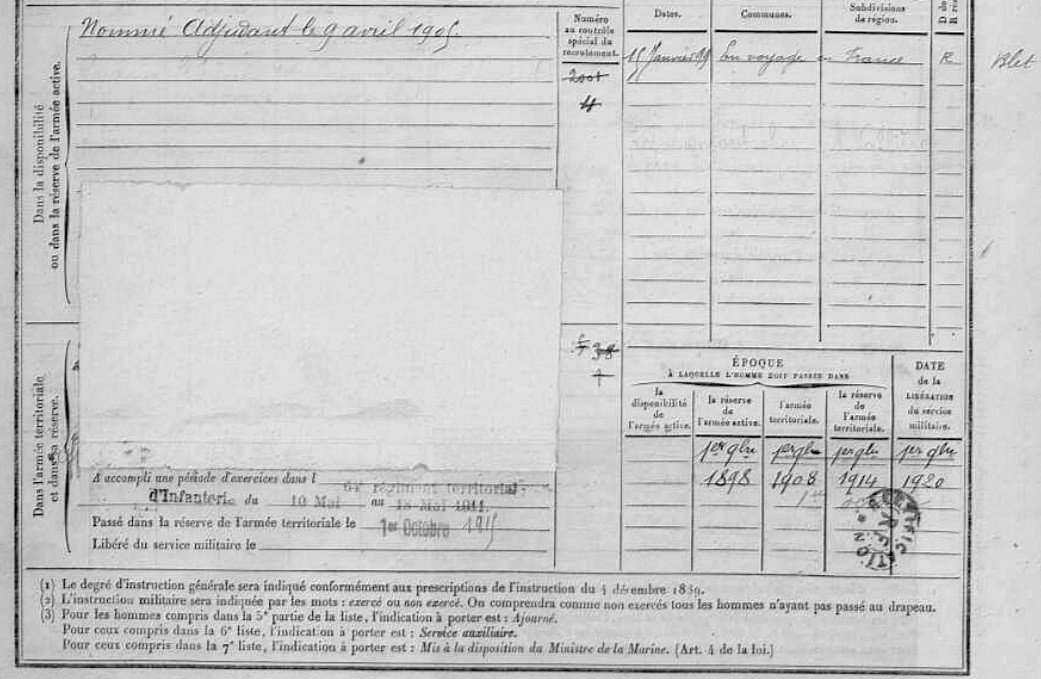 Dans la disponibilité
ou dans la réserve de l'armée active.
Nommé Adjudant le 9 avril 1905.
Numéro
au contrôle
spécial du
recrutement.
2001
4
Dates.
Communes.
Subdivisions
de région.
D. o
R. ré
15 Janvier 99 En voyage en France R
Blet
Dans l'armée territoriale
et dans sa réserve.
38
ÉPOQUE
À LAQUELLE L'HOMME DOIT PASSER DANS
la
disponibilité
de
l'armée active.
la réserve
de
l'armée active.
l'armée
territoriale.
la réserve
de
l'armée
territoriale.
DATE
de la
LIBÉRATION
du service
militaire.
1er 9bre 1er 9bre 1er 9bre 1er 9bre
1898 1908 1914 1920
RECTIFICATION
A accompli une période d'exercices dans l
régiment territorial
d'Infanterie du 10 Mai au 18 Mai 1911.
Passé dans la réserve de l'armée territoriale le 1er Octobre 1915
Libéré du service militaire le
(1) Le degré d'instruction générale sera indiqué conformément aux prescriptions de l'instruction du 4 décembre 1889.
(2) L'instruction militaire sera indiquée par les mots : exercé ou non exercé. On comprendra comme non exercés tous les hommes n'ayant pas passé au drapeau.
(3) Pour les hommes compris dans la 5e partie de la liste, l'indication à porter est : Ajourné.
Pour ceux compris dans la 6e liste, l'indication à porter est : Service auxiliaire.
Pour ceux compris dans la 7e liste, l'indication à porter est : Mis à la disposition du Ministre de la Marine. (Art. 4 de la loi.)